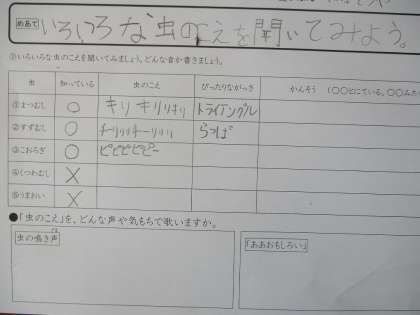 めあて いろいろな虫のこえを聞いてみよう。
①いろいろな虫のこえを聞いてみましょう。どんな音か書きましょう。
虫 知っている 虫のこえ ぴったりながっき かんそう (○○とにている、○○みた
①まつむし ○ キリキリリキリ トライアングル
②すずむし ○ チーリリリチーリリリ らっぱ
③こおろぎ ○ ピピピピピー
④くつわむし ×
⑤うまおい ×
●「虫のこえ」を、どんな声や気もちで歌いますか。
虫の鳴き声 「ああおもしろい」